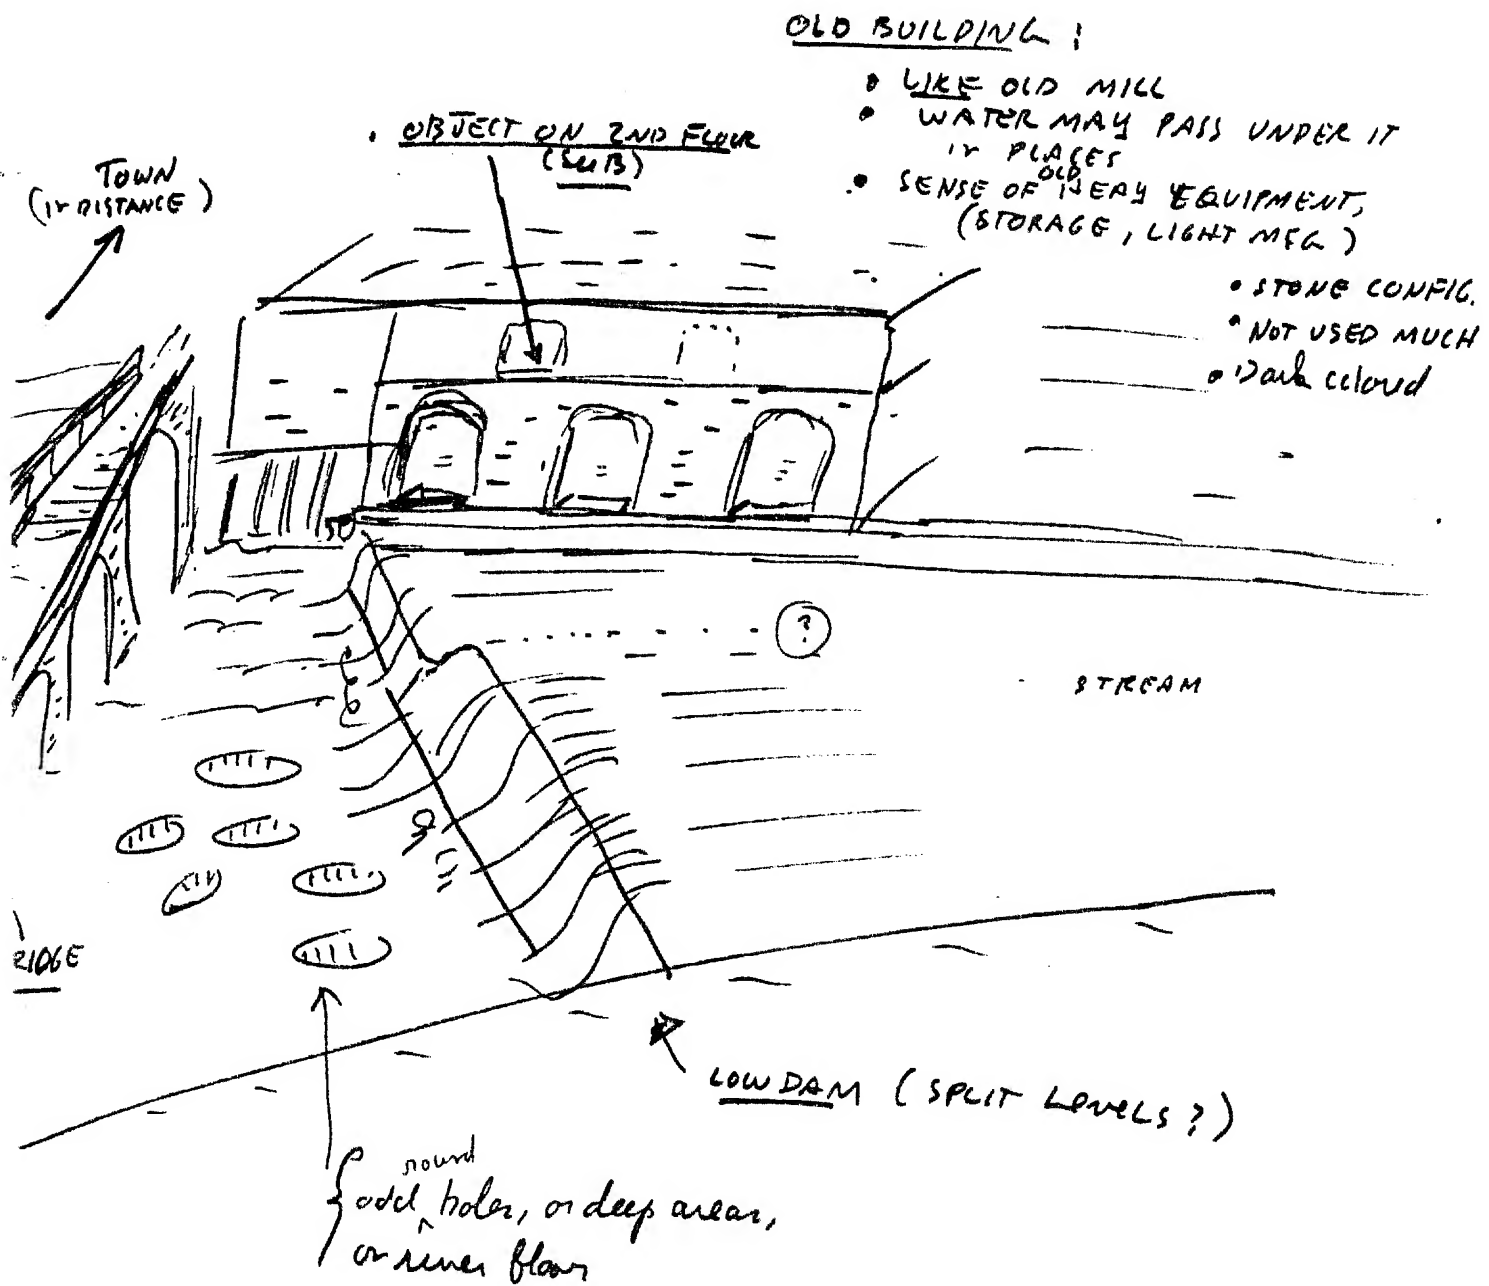 OLD BUILDING :
• LIKE OLD MILL
• WATER MAY PASS UNDER IT
in PLACES
• SENSE OF OLD HEAY EQUIPMENT,
(STORAGE, LIGHT MFG)
• STONE CONFIG.
• NOT USED MUCH
• Dark colord
• OBJECT ON 2ND FLOOR
(SUB)
TOWN
(in DISTANCE)
?
STREAM
RIDGE
LOW DAM (SPLIT LeveLS?)
odd round holes, or deep areas,
on river floor